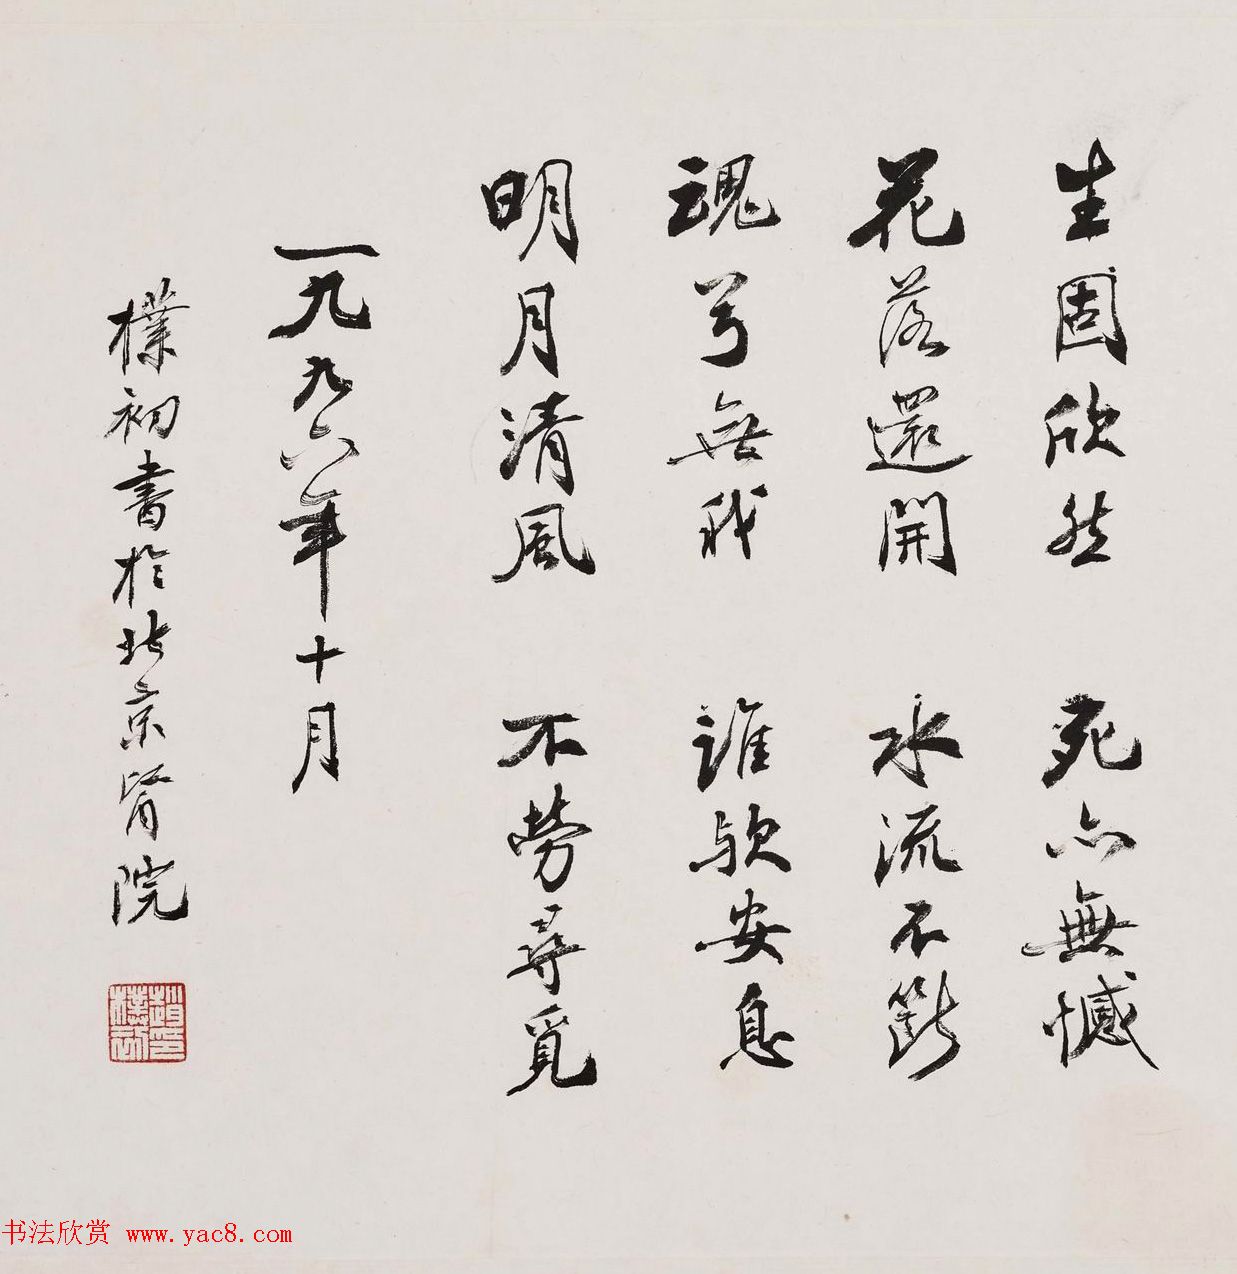 生固欣然　死亦無憾
花落還開　水流不斷
魂兮無我　誰歟安息
明月清風　不勞尋覓
一九九六年十月
樸初書於北京醫院
趙樸初印
书法欣赏 www.yac8.com